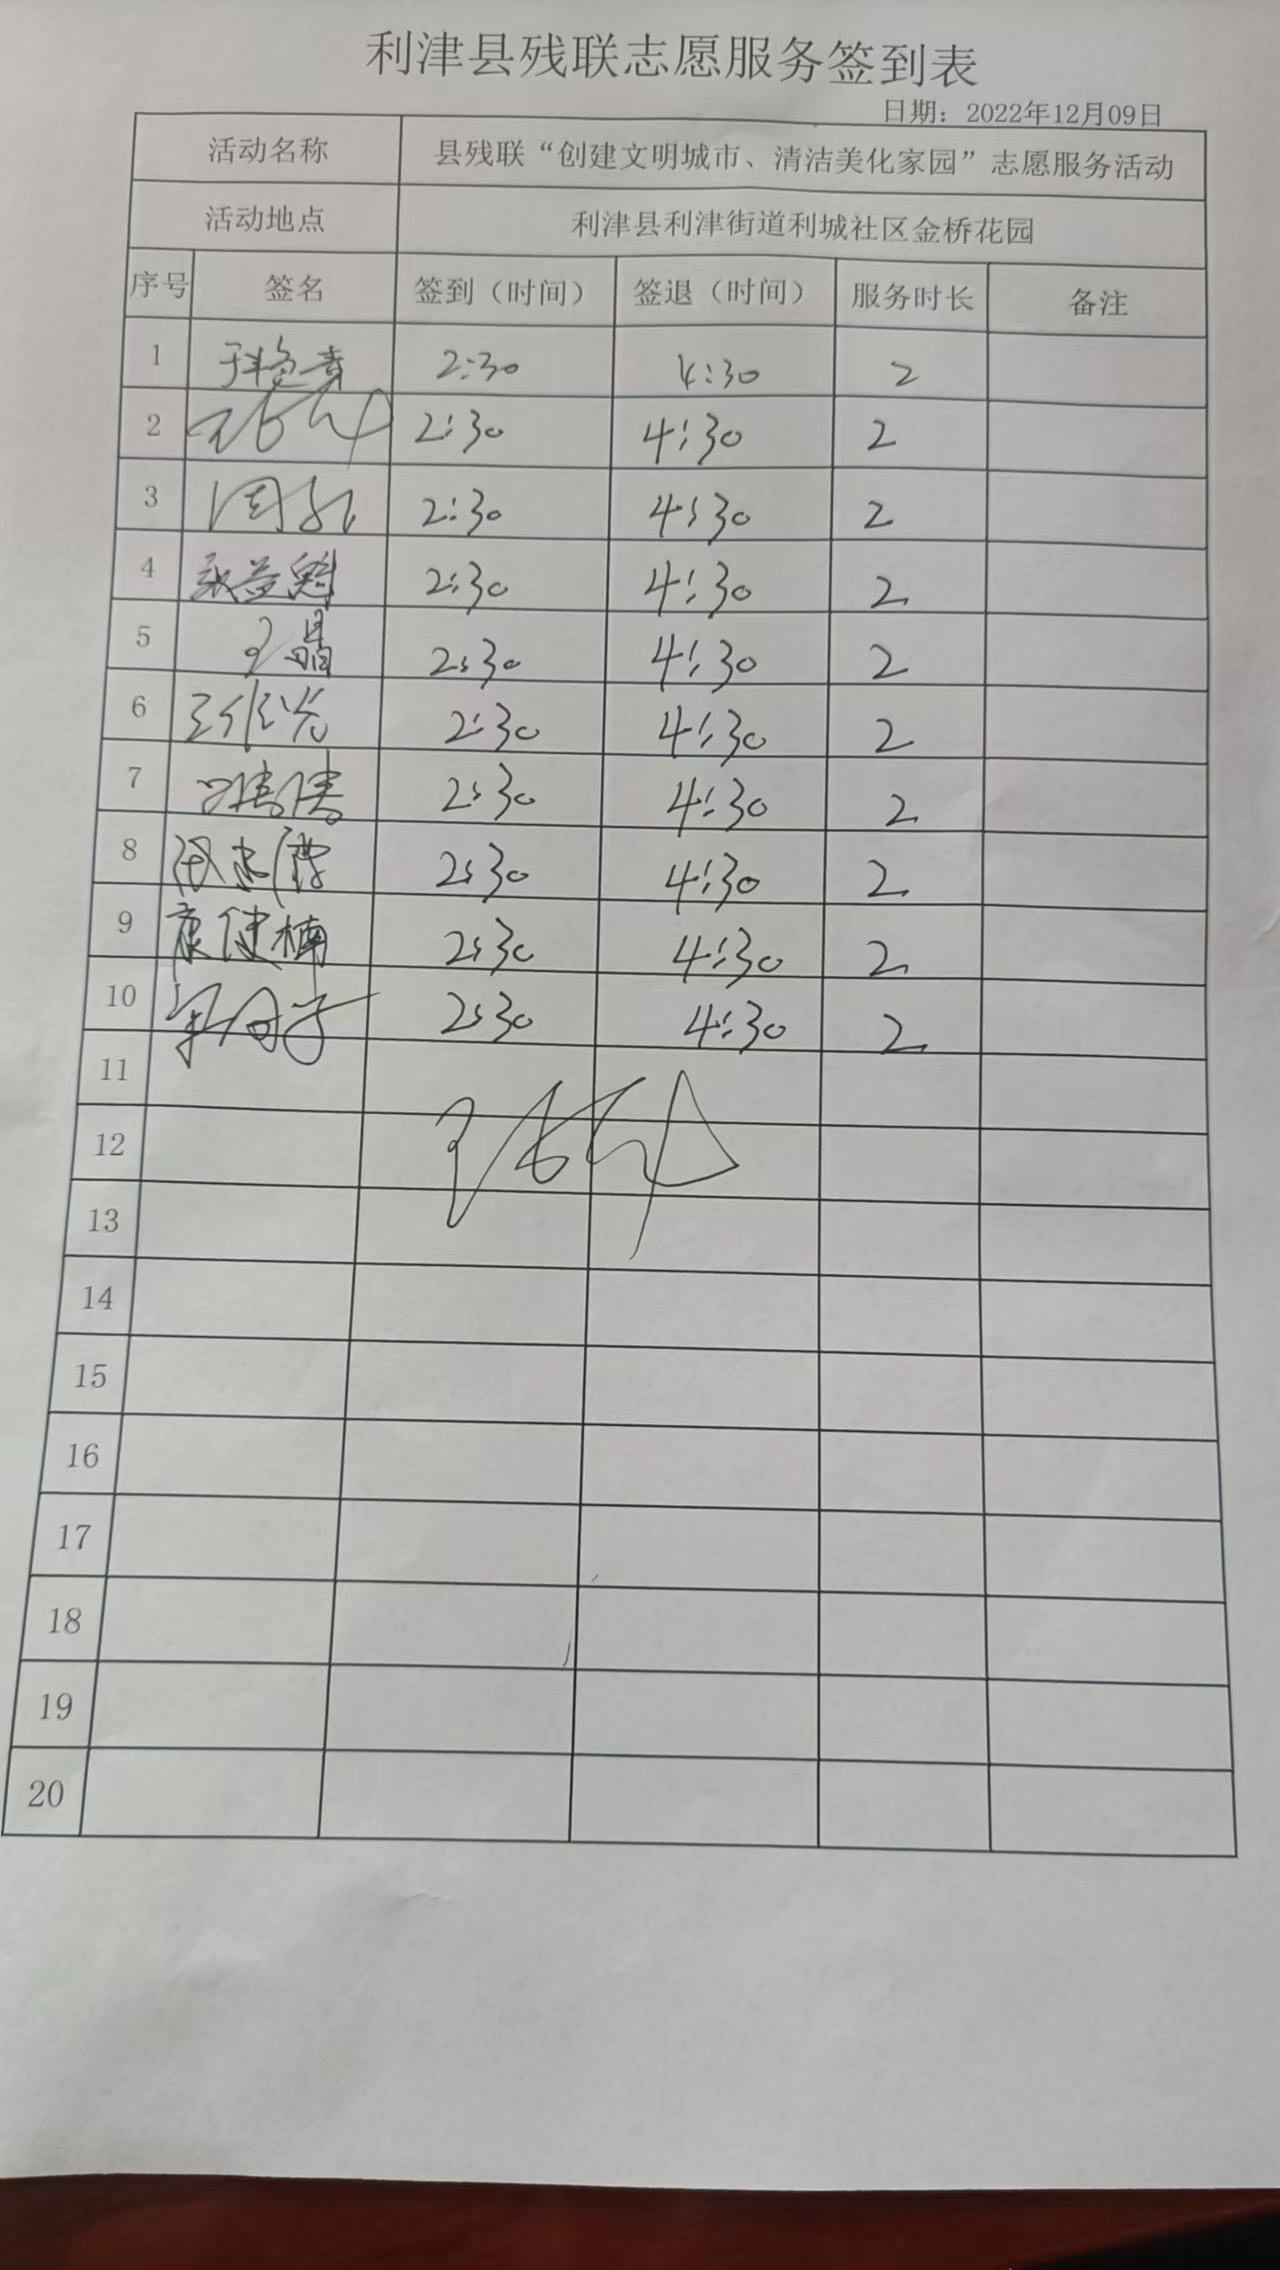 利津县残联志愿服务签到表
日期：2022年12月09日
活动名称 县残联“创建文明城市、清洁美化家园”志愿服务活动
活动地点 利津县利津街道利城社区金桥花园
序号 签名 签到（时间） 签退（时间） 服务时长 备注
1 2:30 4:30 2
2 2:30 4:30 2
3 2:30 4:30 2
4 2:30 4:30 2
5 王晶 2:30 4:30 2
6 2:30 4:30 2
7 2:30 4:30 2
8 2:30 4:30 2
9 康健楠 2:30 4:30 2
10 2:30 4:30 2
11
12
13
14
15
16
17
18
19
20